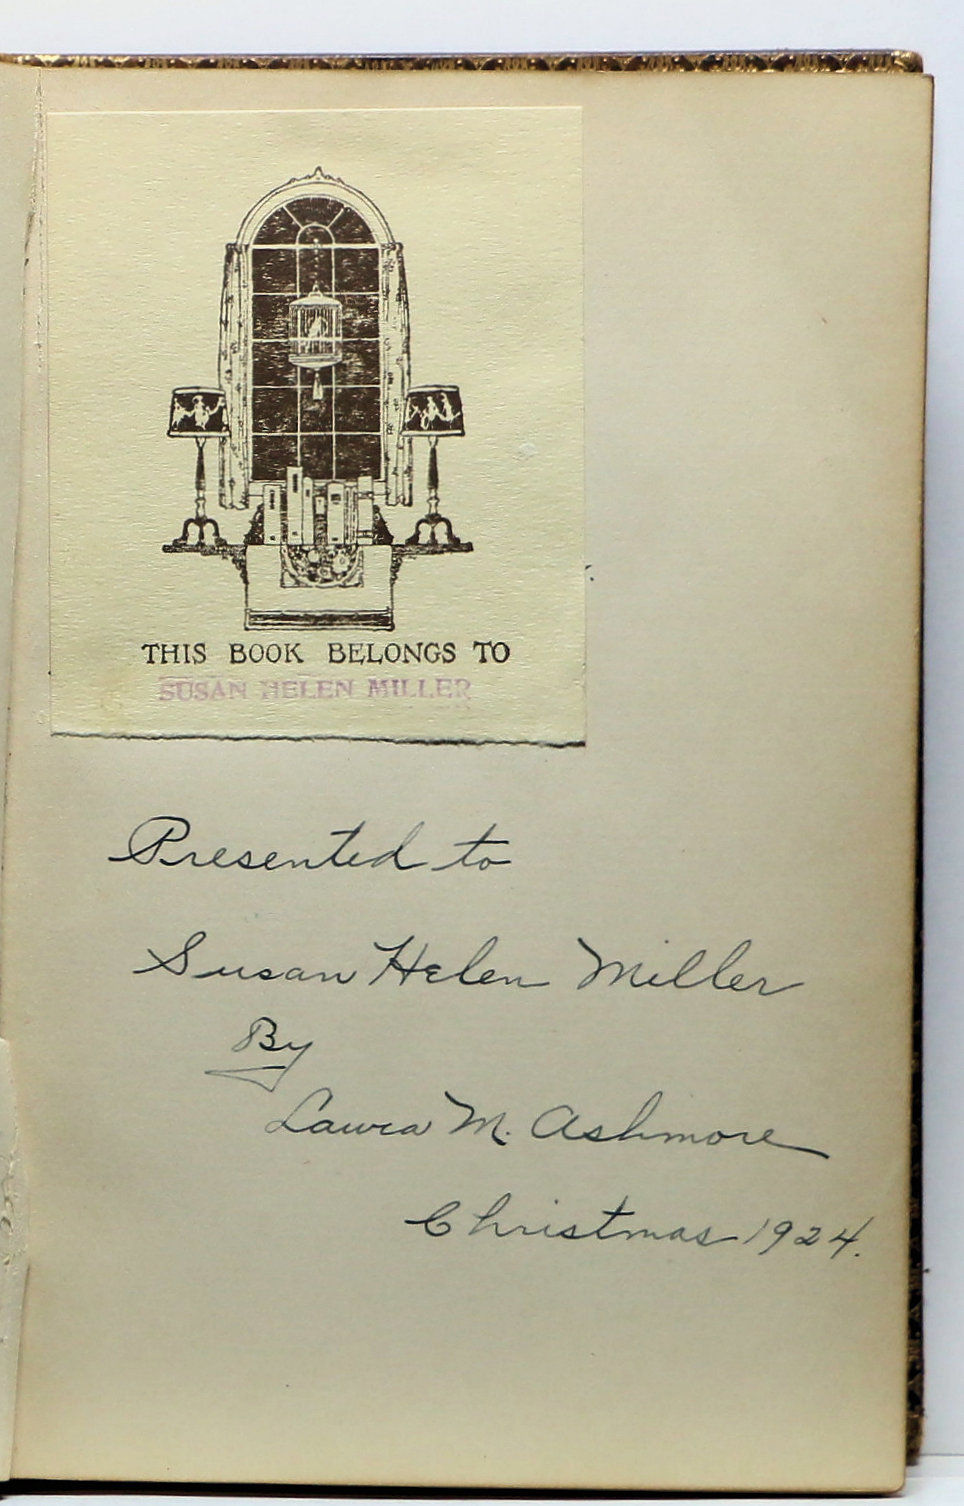 THIS BOOK BELONGS TO
SUSAN HELEN MILLER
Presented to
Susan Helen Miller
By
Laura M. Ashmore
Christmas 1924.